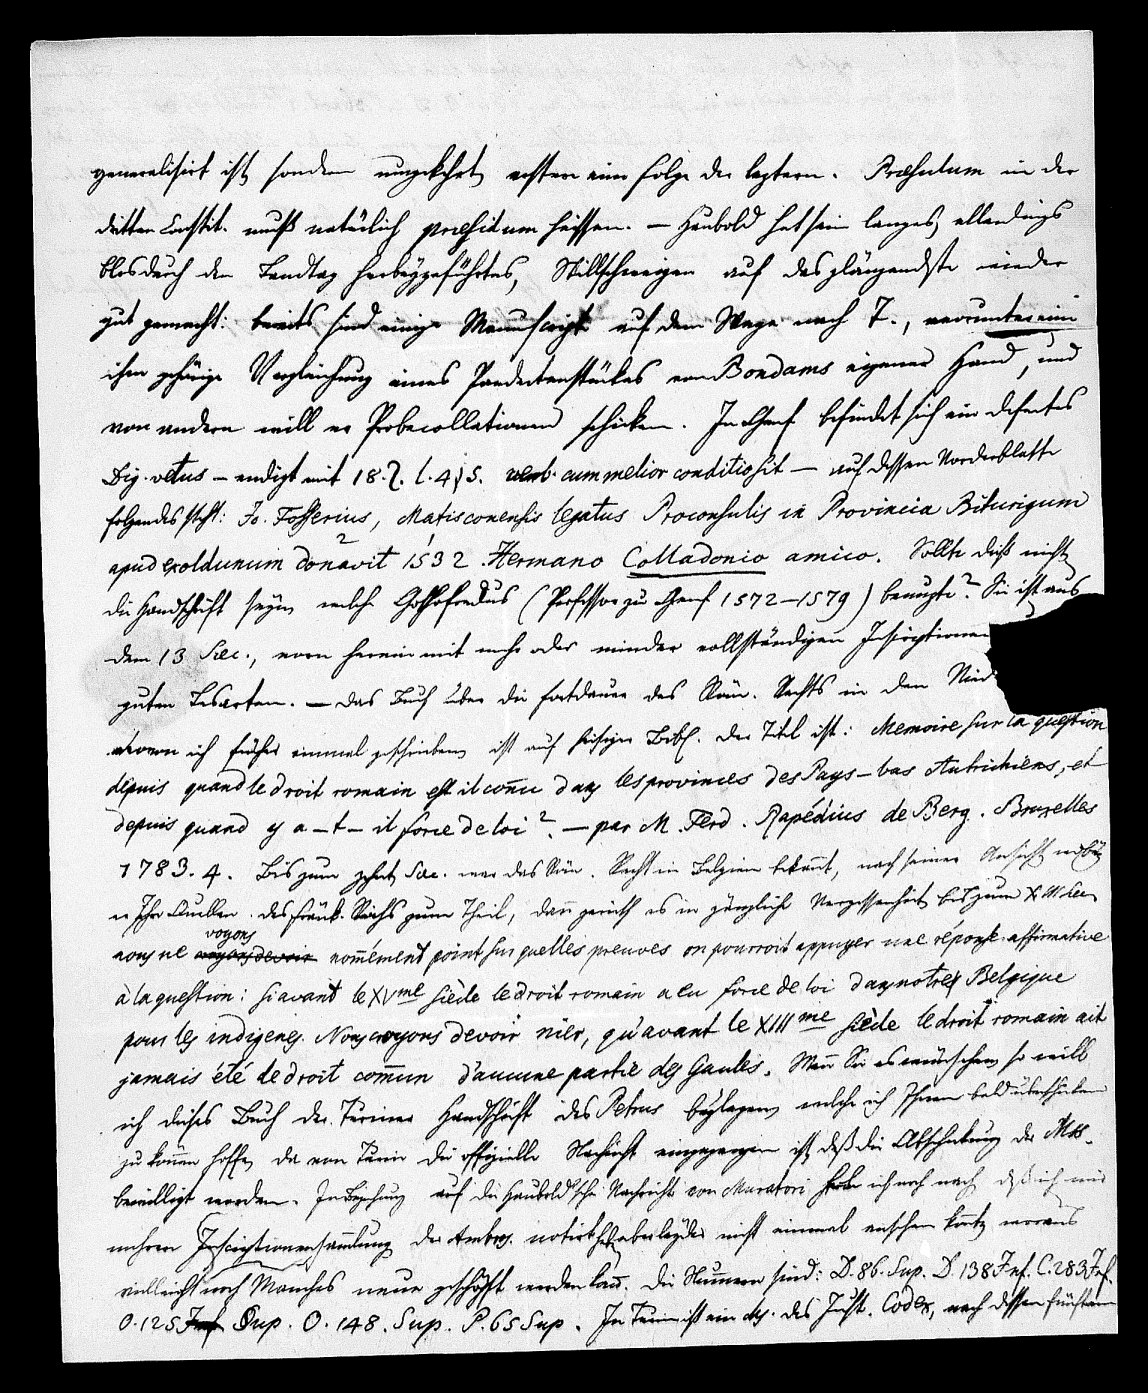 generalisirt ist, sondern umgekehrt, erstere eine Folge der leztern. Præsulum in der
dritten Constit. muß natürlich præsidum heissen. — Haubold hat sein langes, allerdings
blos durch den Landtag herbeygeführtes, Stillschweigen auf das glänzendste wieder
gut gemacht: bereits sind einige Manuscripte auf dem Wege nach T., worunter eine
ihm gehörige Vergleichung eines Pandectenstückes von Bondams eigener Hand, und
von andern will er Probecollationen schicken. In Genf befindet sich ein defectes
Dig. vetus – endigt mit 18. 2. l. 4. § 5. verb. cum melior conditio sit – auf dessen Vorderblatte
folgendes steht: Jo. Fosserius, Matisconensis legatus Proconsulis in Provincia Biturigum
apud exoldunum donavit 1532 Hermano Colladonio amico. Sollte dieß nicht
die Handschrift seyn, welche Gothofredus (Professor zu Genf 1572–1579) benuzte? Sie ist aus
dem 13 Sæc., vorn herein mit mehr oder minder vollständigen Inscriptionen
guten Lesarten. — Das Buch über die Fortdauer des Röm. Rechts in den
wovon ich früher einmal geschrieben, ist auf hiesiger Bibl. Der Titel ist: Memoire sur la question
depuis quand le droit romain est il connu dans les provinces des Pays-bas Autrichiens, et
depuis quand y a-t-il force de loi?. — par M. Ferd. Rapédius de Berg. Bruxelles
1783. 4. Bis zum zehnt. Sæc. war das Röm. Recht in Belgien bekannt, nach seiner Ansicht
des fränk. Reichs zum Theil, dann gerieth es in gänzliche Vergessenheit bis zum XIII Sec.
voyons
nous ne voyons devoir nommément point sur quelles preuves on pourroit appuyer une réponse affirmative
à la question: si avant le XVme siècle le droit romain a eu force de loi dans notre Belgique
pour les indigenes. Nous croyons devoir nier, qu'avant le XIIIme siècle le droit romain ait
jamais été le droit commun d'aucune partie des Gaules. Wenn Sie es wünschen, so will
ich dieses Buch der Turiner Handschrift des Petrus beylegen, welche ich Ihnen bald überschicken
zu können hoffe, da von Turin die offizielle Nachricht eingegangen ist, daß die Abschickung der Mss.
bewilligt worden. In Beziehung auf die Haubold'sche Nachricht von Muratori habe ich noch nach, daß ich mir
mehrere Inscriptionensammlung der Ambros. notirt habe, aber leyder nicht einmal ansehen konnte, woraus
vielleicht noch Manches neue geschöpft werden kann. Die Nummern sind: D. 86. Sup. D. 138 Inf. C. 283 Inf.
O. 125 Inf Sup. O. 148. Sup. P. 65 Sup. In Turin ist ein Ms. des Just. Codex, nach dessen fünftem